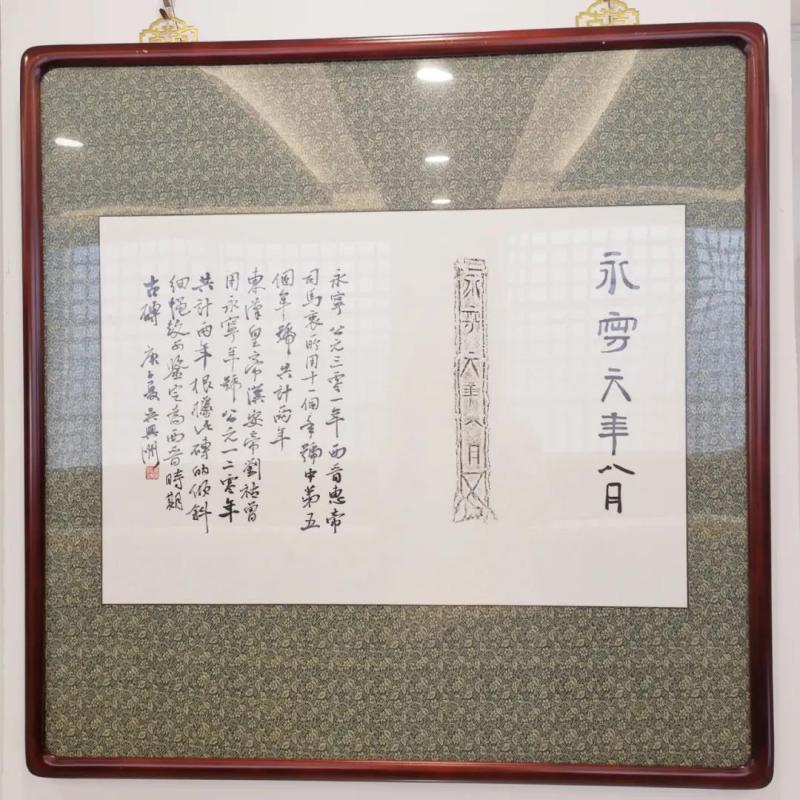 永寧元年八月
永寧元年八月
永寧 公元三零一年 西晉惠帝
司馬衷所用十一個年號中第五
個年號 共計兩年
東漢皇帝漢安帝劉祜曾
用永寧年號 公元一二零年
共計兩年 根據此磚的傾斜
細繩紋可鑒定為西晉時期
古磚 庚子夏 吳興洲